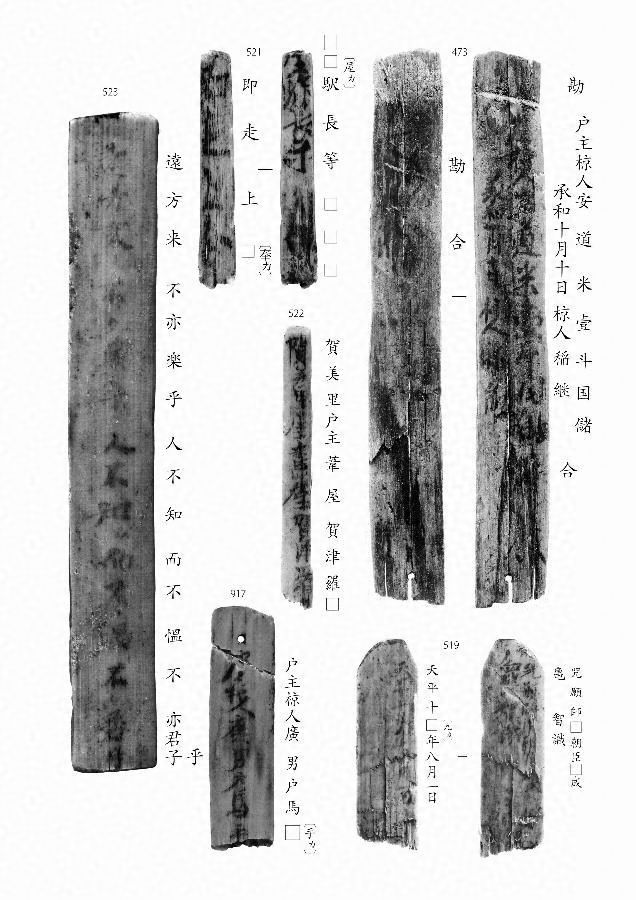 473
勘
户主椋人安道米壹斗国儲
承和十月十日椋人稲継
合
勘合一
521
□□
〔屋カ〕
駅長等□□□
即走一上□
〔奉カ〕
522
賀美里户主葦屋賀津羅□
523
遠方来不亦楽乎人不知而不慍不亦君子
乎
917
户主椋人廣男户馬□
〔手カ〕
519
咒願師□朝臣□成
智識
天平十□年八月一日
〔九カ〕
一